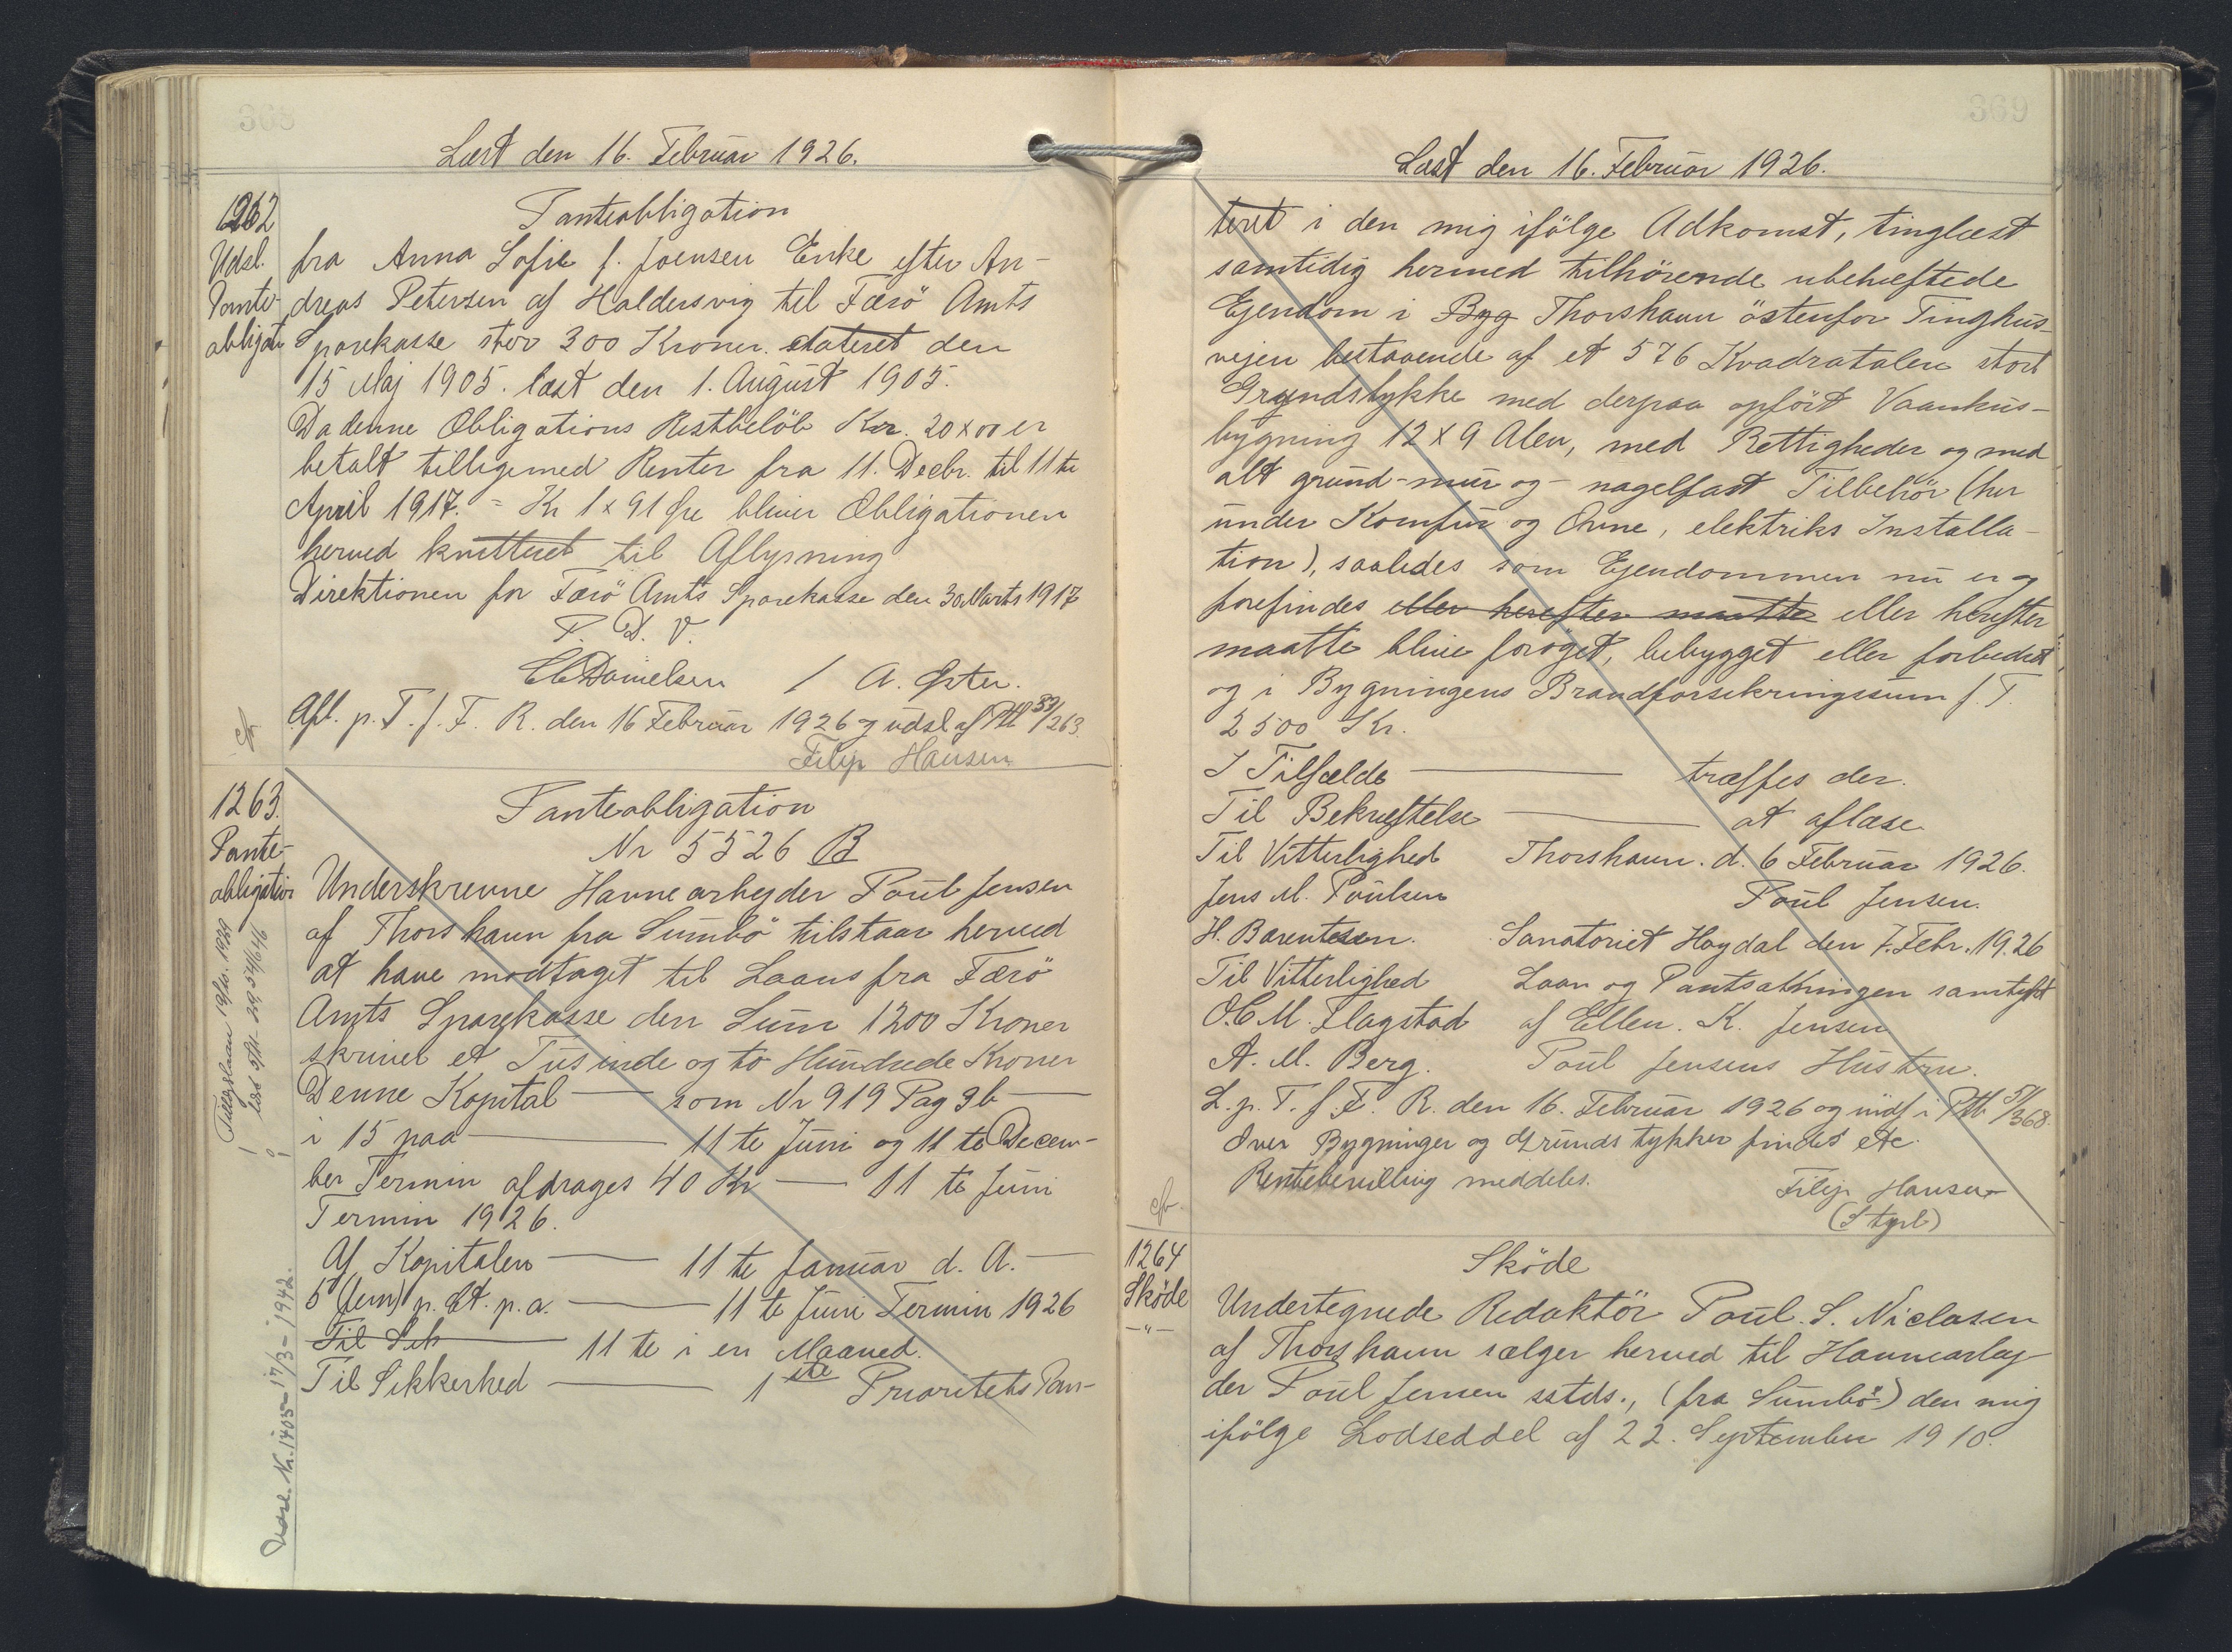 368
Læst den 16. Februar 1926.
1262
Udsl.
Pante-
obligation
Panteobligation
fra Anna Sofie f. Joensen Enke efter An-
dreas Petersen af Haldersvig til Færö Amts
Sparekasse stor 300 Kroner. dateret den
15 Maj 1905. læst den 1. August 1905.
Da denne Obligations Restbelöb Kr. 20 x 00 er
betalt tilligemed Renter fra 11. Decbr. til 11te
April 1917. = Kr 1 x 91 Øre bliver Obligationen
herved kvitteret til Aflysning
Direktionen for Færö Amts Sparekasse den 30 Marts 1917
P. D. V.
C Danielsen / A. Øster.
Afl. p. T. f. F. R. den 16 Februar 1926 og udsl af Ptl 33/263.
Filip Hansen
1263.
Pante-
obligation
Panteobligation
Nr 5526 B
Underskrevne Havnearbejder Poul Jensen
af Thorshavn fra Sumbö tilstaar herved
at have modtaget til Laans fra Færö
Amts Sparekasse den Sum 1200 Kroner
skriver et Tusinde og to Hundrede Kroner
Denne Kapital — som Nr 919 Pag 96 —
i 15 paa — 11te Juni og 11te Decem-
ber Termin afdrages 40 Kr — 11te Juni
Termin 1926.
Af Kapitalen — 11te Januar d. A. —
5 (fem) p. Ct. p. a. — 11te Juni Termin 1926
Til Sik — 11te i en Maaned.
Til Sikkerhed — 1ste Prioritets Pan-
Udsl. Nr. 1405 - 17/3 - 1942.
369
Læst den 16. Februar 1926.
teret i den mig ifölge Adkomst, tinglæst
samtidig hermed tilhörende ubehæftede
Ejendom i Byg Thorshavn östenfor Tinghus-
vejen bestaaende af et 576 Kvadratalen stort
Grundstykke med derpaa opfört Vaanhus-
bygning 12 x 9 Alen, med Rettigheder og med
alt grund-mur og - nagelfast Tilbehör (her
under Komfur og Ovne, elektriks Installa-
tion), saaledes som Ejendommen nu er og
forefindes eller herefter maatte eller herefter
maatte blive foröget, bebygget eller forbedret
og i Bygningens Brandforsikringssum f. T.
2500 Kr.
I Tilfælde — træffes der.
Til Bekræftelse — at aflæse
Til Vitterlighed Thorshavn. d. 6 Februar 1926.
Jens M. Poulsen Poul Jensen.
H. Barentsen. Sanatoriet Hoydal den 7. Febr. 1926
Til Vitterlighed Laan og Pantsætningen samtykt
O. C. M. Flagstad af Ellen. K. Jensen
A. M. Berg. Poul Jensens Hustru.
L. p. T. f. F. R. den 16. Februar 1926 og indf i Ptb 51/368.
Over Bygninger og Grundstykker findes etc.
Rentebevilling meddeles.
Filip Hansen
(Styrb)
1264
Sköde
-"-
Sköde
Undertegnede Redaktör Poul. S. Niclasen
af Thorshavn sælger herved til Havnearbej-
der Poul Jensen sstds., (fra Sumbö) den mig
ifölge Lodseddel af 22. September 1910.